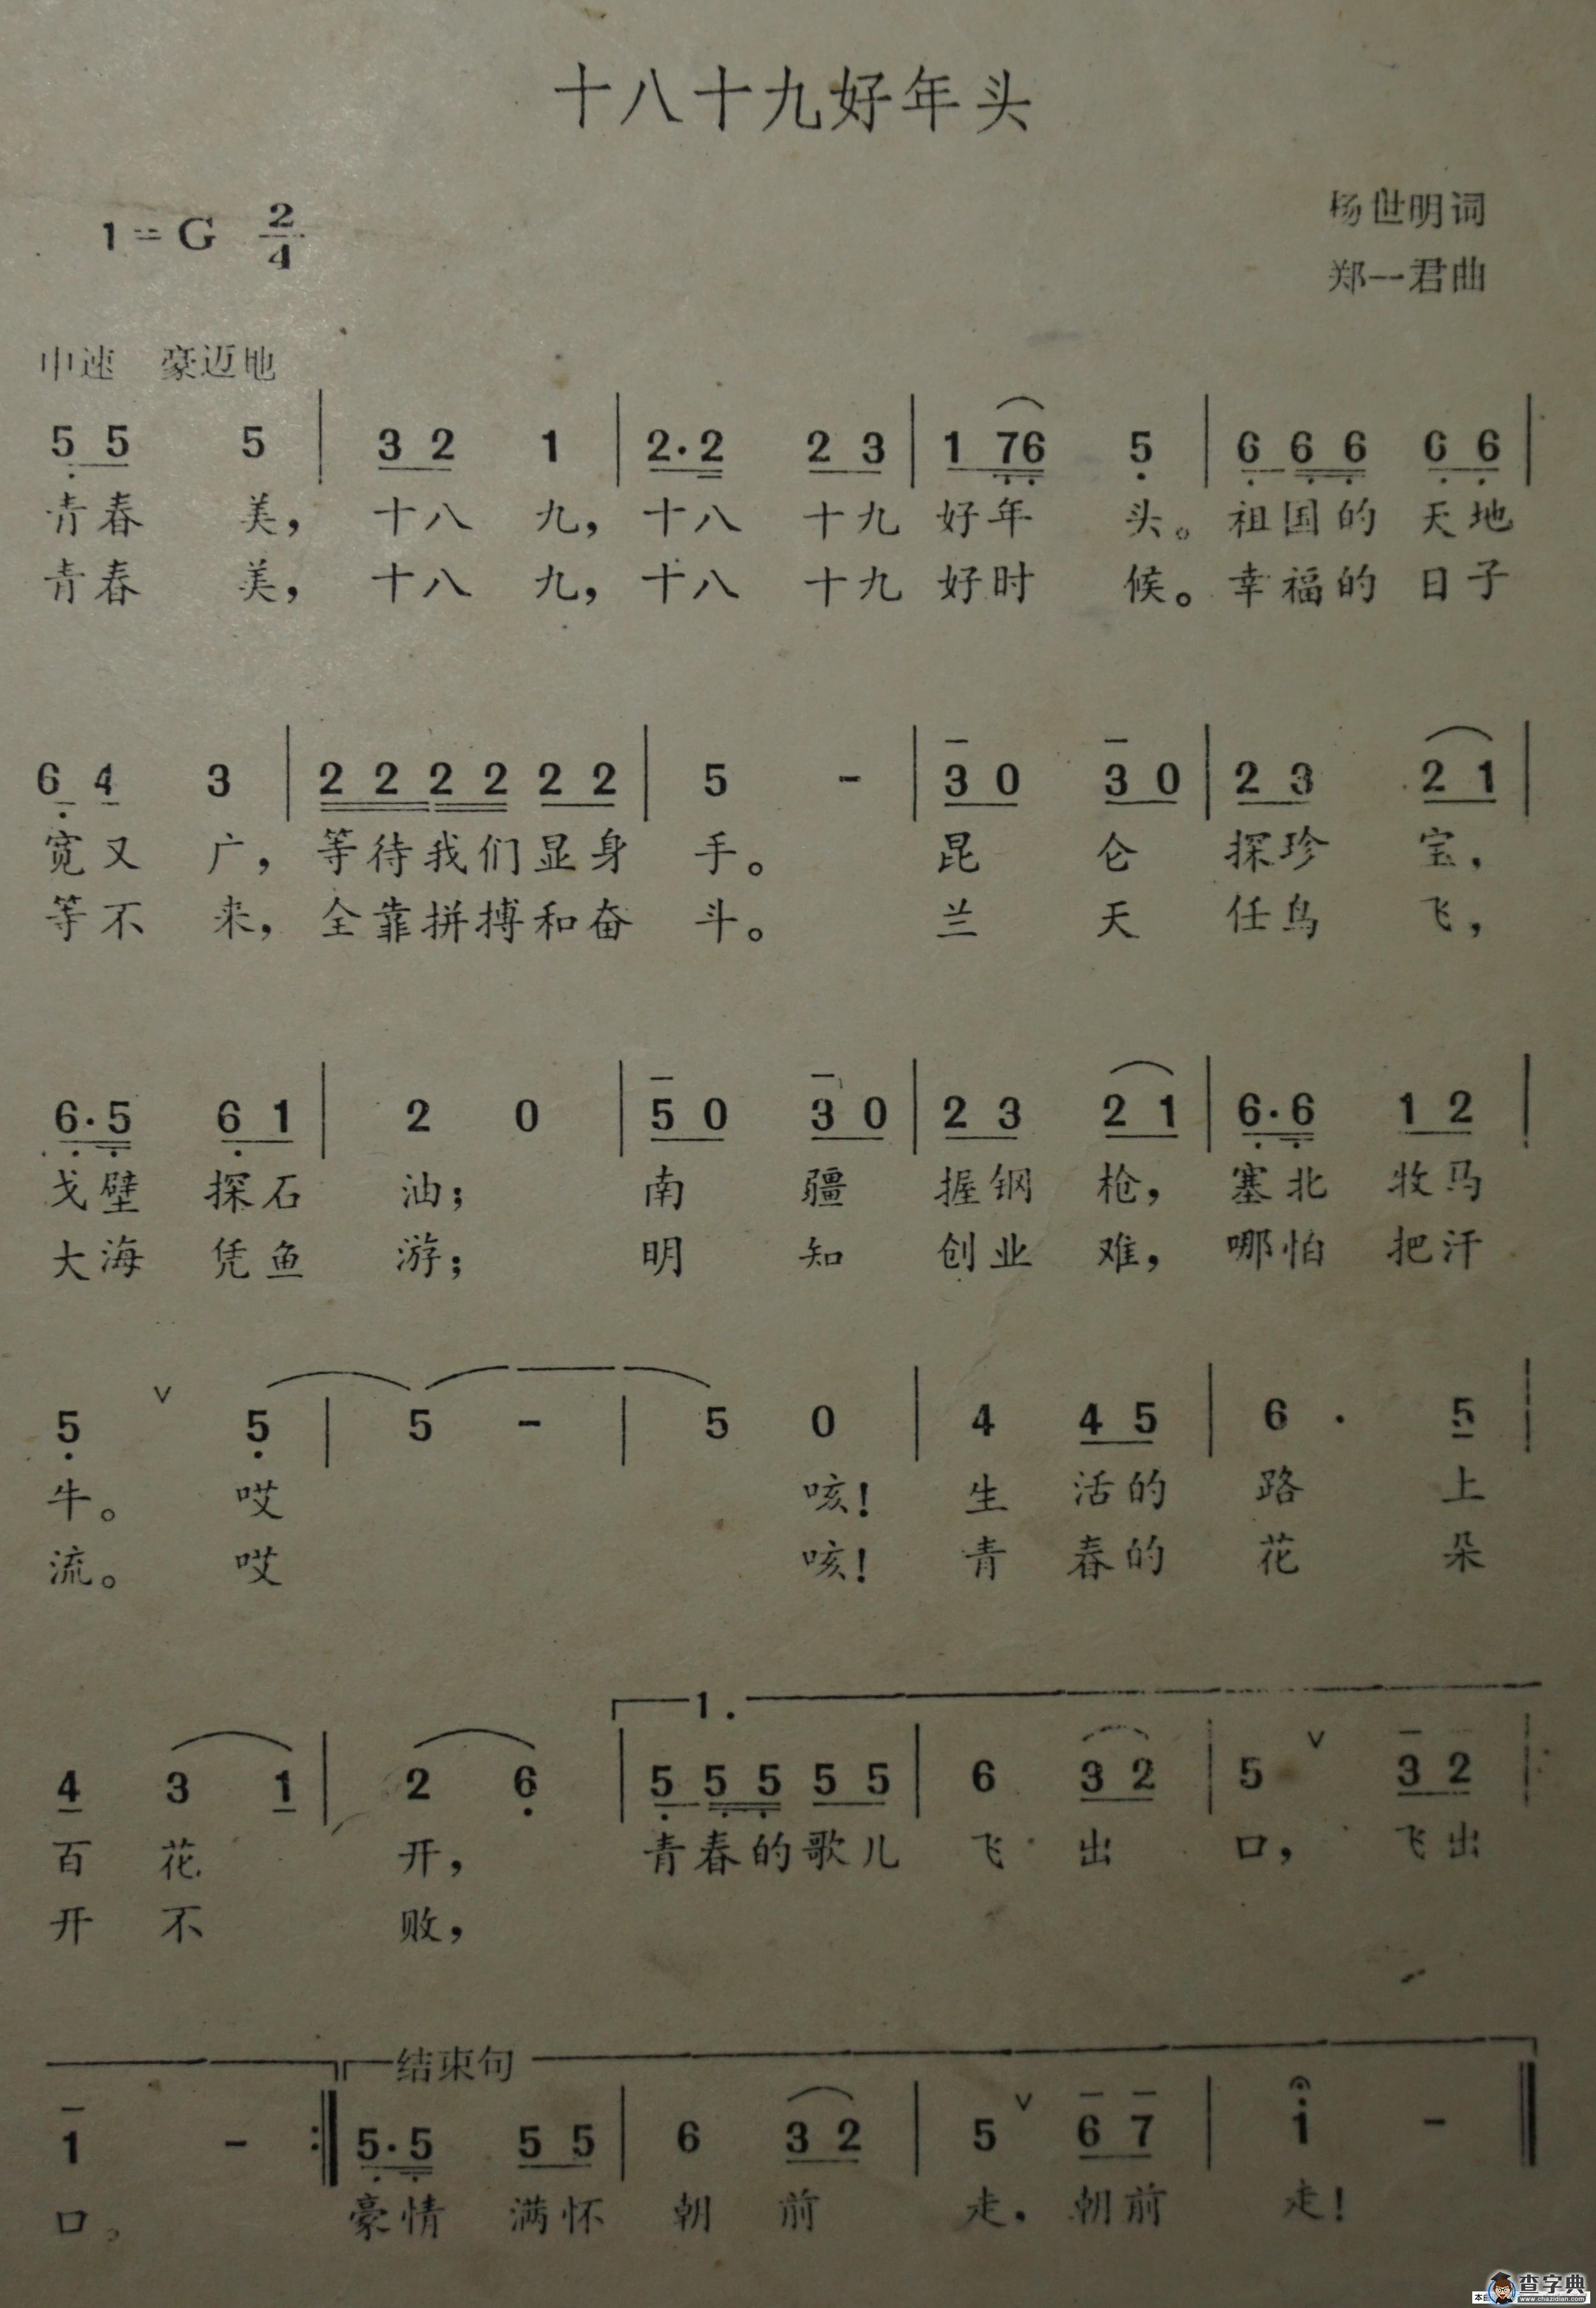 十八十九好年头
1=G 2/4
杨世明词
郑一君曲
中速 豪迈地
5 5 5 | 3 2 1 | 2·2 2 3 | 1 76 5 | 6 6 6 6 6 |
青春 美, 十八 九, 十八 十九 好年 头。 祖国的 天地
青春 美, 十八 九, 十八 十九 好时 候。 幸福的 日子
6 4 3 | 2 2 2 2 2 2 | 5 - | 3 0 3 0 | 2 3 2 1 |
宽又 广, 等待我们显身 手。 昆 仑 探珍 宝,
等不 来, 全靠拼搏和奋 斗。 兰 天 任鸟 飞,
6·5 6 1 | 2 0 | 5 0 3 0 | 2 3 2 1 | 6·6 1 2 |
戈壁 探石 油; 南 疆 握钢 枪, 塞北 牧马
大海 凭鱼 游; 明 知 创业 难, 哪怕 把汗
5 ∨ 5 | 5 - | 5 0 | 4 4 5 | 6 · 5 |
牛。 哎 咳! 生 活的 路 上
流。 哎 咳! 青 春的 花 朵
1.
4 3 1 | 2 6 | 5 5 5 5 5 | 6 3 2 | 5 ∨ 3 2 |
百 花 开, 青春的歌儿 飞 出 口, 飞出
开 不 败,
结束句
1 - :‖ 5·5 5 5 | 6 3 2 | 5 ∨ 6 7 | i - ‖
口, 豪情 满怀 朝 前 走, 朝前 走!
查字典
www.chazidian.com